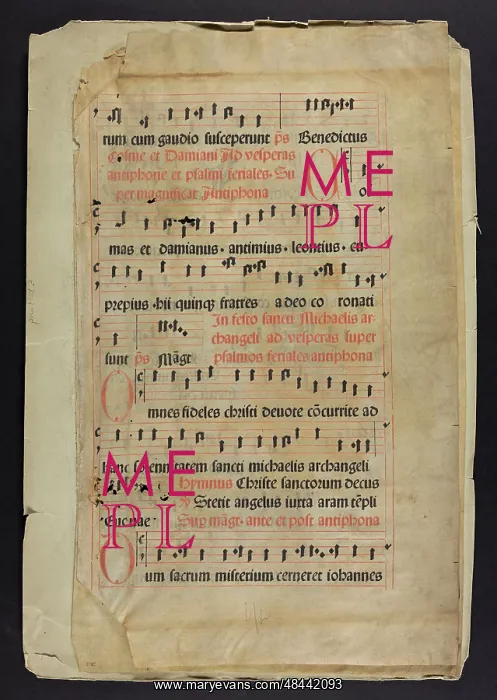 rum cum gaudio susceperunt ps Benedictus
Cosme et Damiani Ad vesperas
antiphone et psalmi feriales. Su
per magnificat Antiphona
O
mas et damianus. antimius. leontius. eu
prepius. hii quinq3 fratres a deo co ronati
In festo sancti Michaelis ar-
changeli ad vesperas super
sunt ps Māgt psalmos feriales antiphona
O
mnes fideles christi deuote cōcurrite ad
hanc solennitatem sancti michaelis archangeli
Hymnus Christe sanctorum decus
Stetit angelus iuxta aram tēpli
Euouae Sup māgt. ante et post antiphona
D
um sacrum misterium cerneret iohannes
ME
PL
ME
PL
www.maryevans.com/48442093